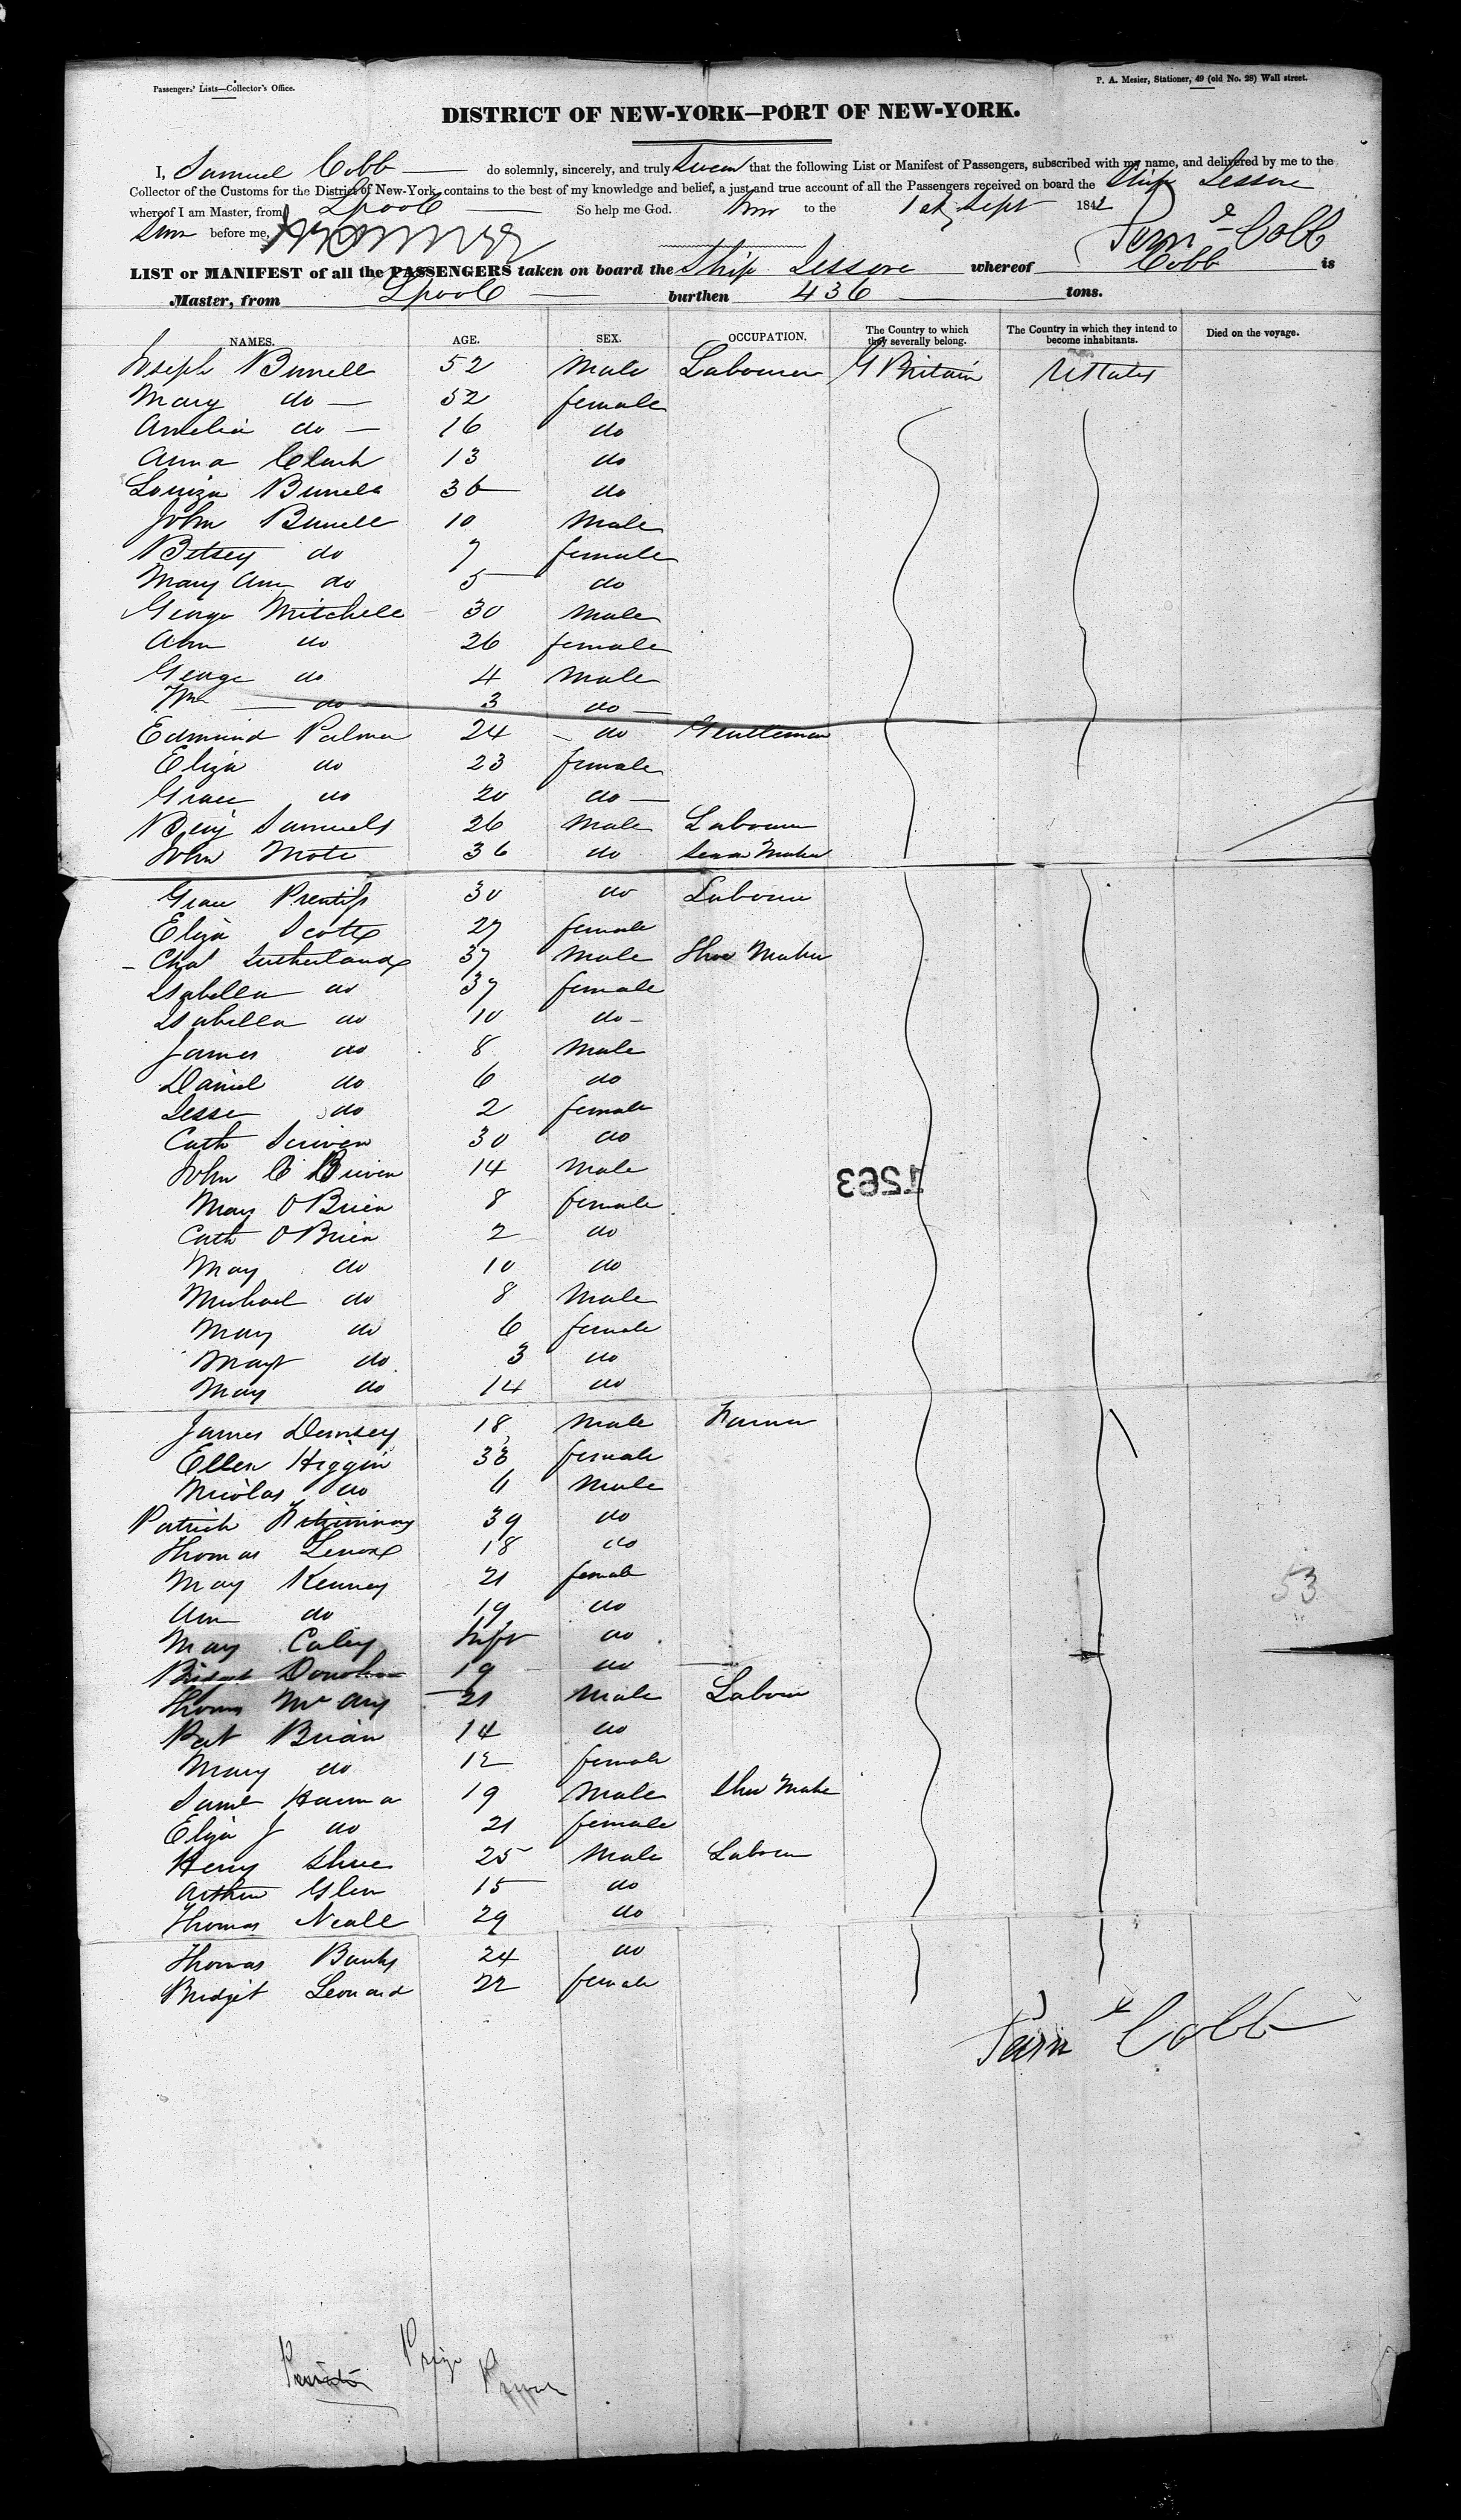 Passengers' Lists—Collector's Office.
P. A. Mesier, Stationer, 49 (old No. 28) Wall street.
DISTRICT OF NEW-YORK—PORT OF NEW-YORK.
I, Samuel Cobb do solemnly, sincerely, and truly Swear that the following List or Manifest of Passengers, subscribed with my name, and delivered by me to the
Collector of the Customs for the District of New-York, contains to the best of my knowledge and belief, a just and true account of all the Passengers received on board the Ship Lessore
whereof I am Master, from Lpool So help me God. Swn to the 1st Sept 1842
Swn before me, Saml Cobb
LIST or MANIFEST of all the PASSENGERS taken on board the Ship Lessore whereof Cobb is
Master, from Lpool burthen 436 tons.
NAMES. AGE. SEX. OCCUPATION. The Country to which they severally belong. The Country in which they intend to become inhabitants. Died on the voyage.
Joseph Burrell 52 Male Labourer G Britain U States
Mary do 52 female
Amelia do 16 do
Anna Clark 13 do
Louiza Burrell 36 do
John Burrell 10 Male
Betsey do 7 female
Mary Ann do 5 do
George Mitchell 30 Male
Ann do 26 female
George do 4 Male
Wm do 3 do
Edmund Palmer 24 do Gentleman
Eliza do 23 female
Grace do 20 do
Benj Samuels 26 Male Labourer
John Mote 36 do Maker
Grace Prentiss 30 do Labourer
Eliza Scott 27 female
Chas Sutherland 37 Male Shoe Maker
Isabella do 37 female
Isabella do 10 do
James do 8 Male
Daniel do 6 do
Jesse do 2 female
Cath Scriven 30 do
John 14 Male
1263
Mary O Brien 8 female
Cath O Brien 2 do
Mary do 10 do
Michael do 8 Male
Mary do 6 female
Margt do 3 do
Mary do 14 do
James Demsey 18 Male Farmer
Ellen Higgin 33 female
Nicolas do Male
Patrick Fitzsimmons 39 do
Thomas Lenox 18 do
Mary Kenney 21 female
53
Ann do 19 do
Mary Caley Inft do
Bridget Donohoe 19 do
Thomas 21 Male Labour
Pat Brian 14 do
Mary do 12 female
Saml Hanna 19 Male Shoe Make
Eliza J do 21 female
Henry Shue 25 Male Labour
Arthur Glen 15 do
Thomas Neall 29 do
Thomas Banks 24 do
Bridget Leonard 22 female
Saml Cobb